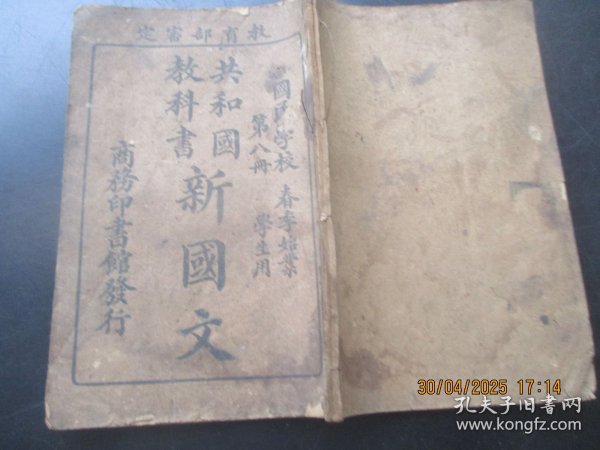 教育部審定
國民學校 春季始業
第八冊 學生用
共和國
教科書
新國文
商務印書館發行
30/04/2025 17:14
孔夫子旧书网
www.kongfz.com